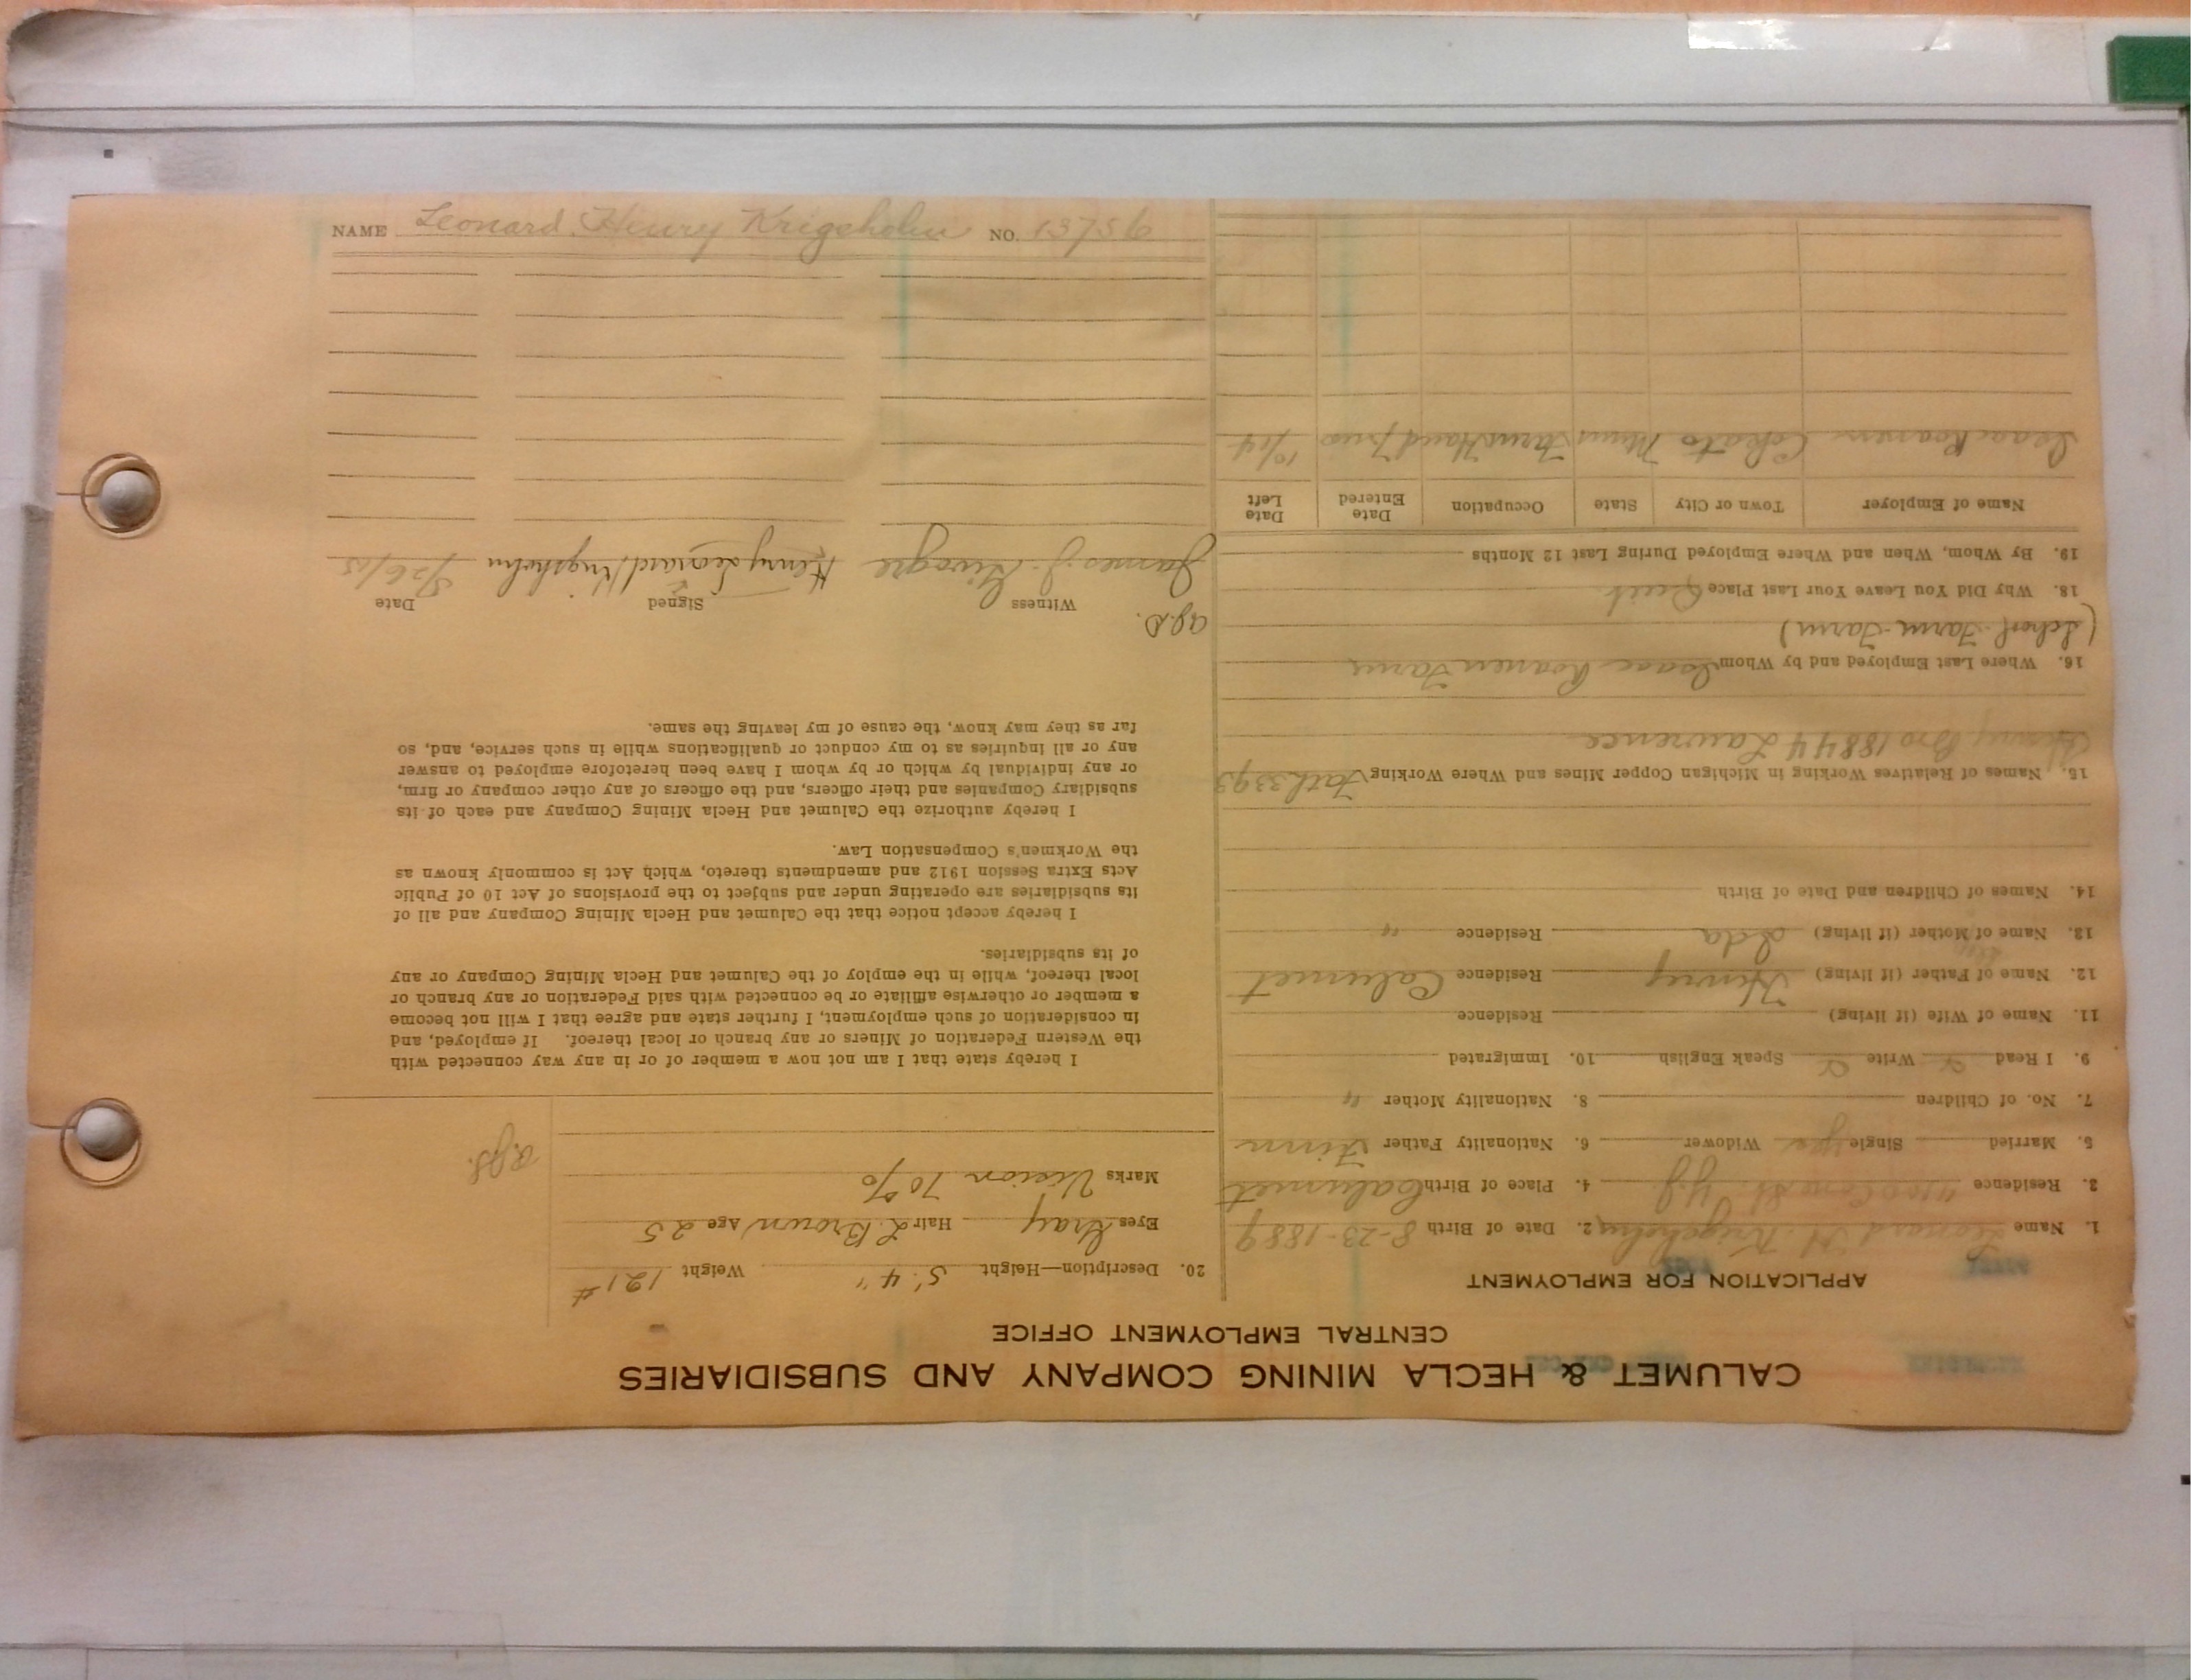 CALUMET & HECLA MINING COMPANY AND SUBSIDIARIES
CENTRAL EMPLOYMENT OFFICE
APPLICATION FOR EMPLOYMENT
1. Name Leonard H. Krigsholm 2. Date of Birth 8-23-1889
3. Residence St. Y.J. 4. Place of Birth Calumet
5. Married Single yes Widower 6. Nationality Father Finn
7. No. of Children 8. Nationality Mother "
9. I Read Write Speak English 10. Immigrated
11. Name of Wife (if living) Residence
12. Name of Father (if living) Henry Residence Calumet
13. Name of Mother (if living) Ida Residence "
14. Names of Children and Date of Birth
15. Names of Relatives Working in Michigan Copper Mines and Where Working Fath 3393
Henry Bro 18844 Lawrence
16. Where Last Employed and by Whom Isaac Farm
(School Farm-Farm)
18. Why Did You Leave Your Last Place Quit
19. By Whom, When and Where Employed During Last 12 Months
Name of Employer Town or City State Occupation Date Entered Date Left
Isaac Cokato Minn Farm Hand 10/14
20. Description—Height 5' 4" Weight 121#
Eyes Gray Hair L Brown Age 25
Marks Vision 70%
I hereby state that I am not now a member of or in any way connected with
the Western Federation of Miners or any branch or local thereof. If employed, and
in consideration of such employment, I further state and agree that I will not become
a member or otherwise affiliate or be connected with said Federation or any branch or
local thereof, while in the employ of the Calumet and Hecla Mining Company or any
of its subsidiaries.
I hereby accept notice that the Calumet and Hecla Mining Company and all of
its subsidiaries are operating under and subject to the provisions of Act 10 of Public
Acts Extra Session 1912 and amendments thereto, which Act is commonly known as
the Workmen's Compensation Law.
I hereby authorize the Calumet and Hecla Mining Company and each of its
subsidiary Companies and their officers, and the officers of any other company or firm,
or any individual by which or by whom I have been heretofore employed to answer
any or all inquiries as to my conduct or qualifications while in such service, and, so
far as they may know, the cause of my leaving the same.
Witness Signed Date
James J. Henry Leonard Krigsholm 8/26/15
NAME Leonard Henry Krigsholm NO. 13756